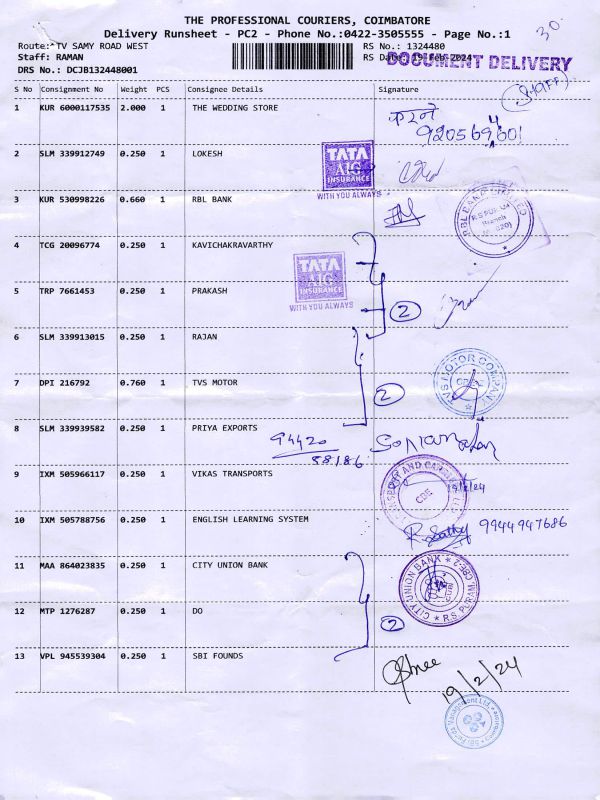 THE PROFESSIONAL COURIERS, COIMBATORE
Delivery Runsheet - PC2 - Phone No.:0422-3505555 - Page No.:1
30
Route:*TV SAMY ROAD WEST
RS No.: 1324480
Staff: RAMAN
RS Date: 19-Feb-2024
DOCUMENT DELIVERY
DRS No.: DCJB132448001
S No Consignment No Weight PCS Consignee Details Signature
1 KUR 6000117535 2.000 1 THE WEDDING STORE
2 SLM 339912749 0.250 1 LOKESH
TATA AIG INSURANCE
WITH YOU ALWAYS
3 KUR 530998226 0.660 1 RBL BANK
RBL BANK LIMITED
R.S PURAM
Branch
4 TCG 20096774 0.250 1 KAVICHAKRAVARTHY
TATA AIG INSURANCE
WITH YOU ALWAYS
5 TRP 7661453 0.250 1 PRAKASH
2
6 SLM 339913015 0.250 1 RAJAN
7 DPI 216792 0.760 1 TVS MOTOR
2
TVS MOTOR COMPANY
8 SLM 339939582 0.250 1 PRIYA EXPORTS
94420
58186
9 IXM 505966117 0.250 1 VIKAS TRANSPORTS
CBE
19/2/24
10 IXM 505788756 0.250 1 ENGLISH LEARNING SYSTEM
R. Sathy 9944947686
11 MAA 864023835 0.250 1 CITY UNION BANK
CITY UNION BANK * R.S. PURAM, CBE-2
12 MTP 1276287 0.250 1 DO
2
13 VPL 945539304 0.250 1 SBI FOUNDS
19/2/24
SBI Funds Management Ltd.